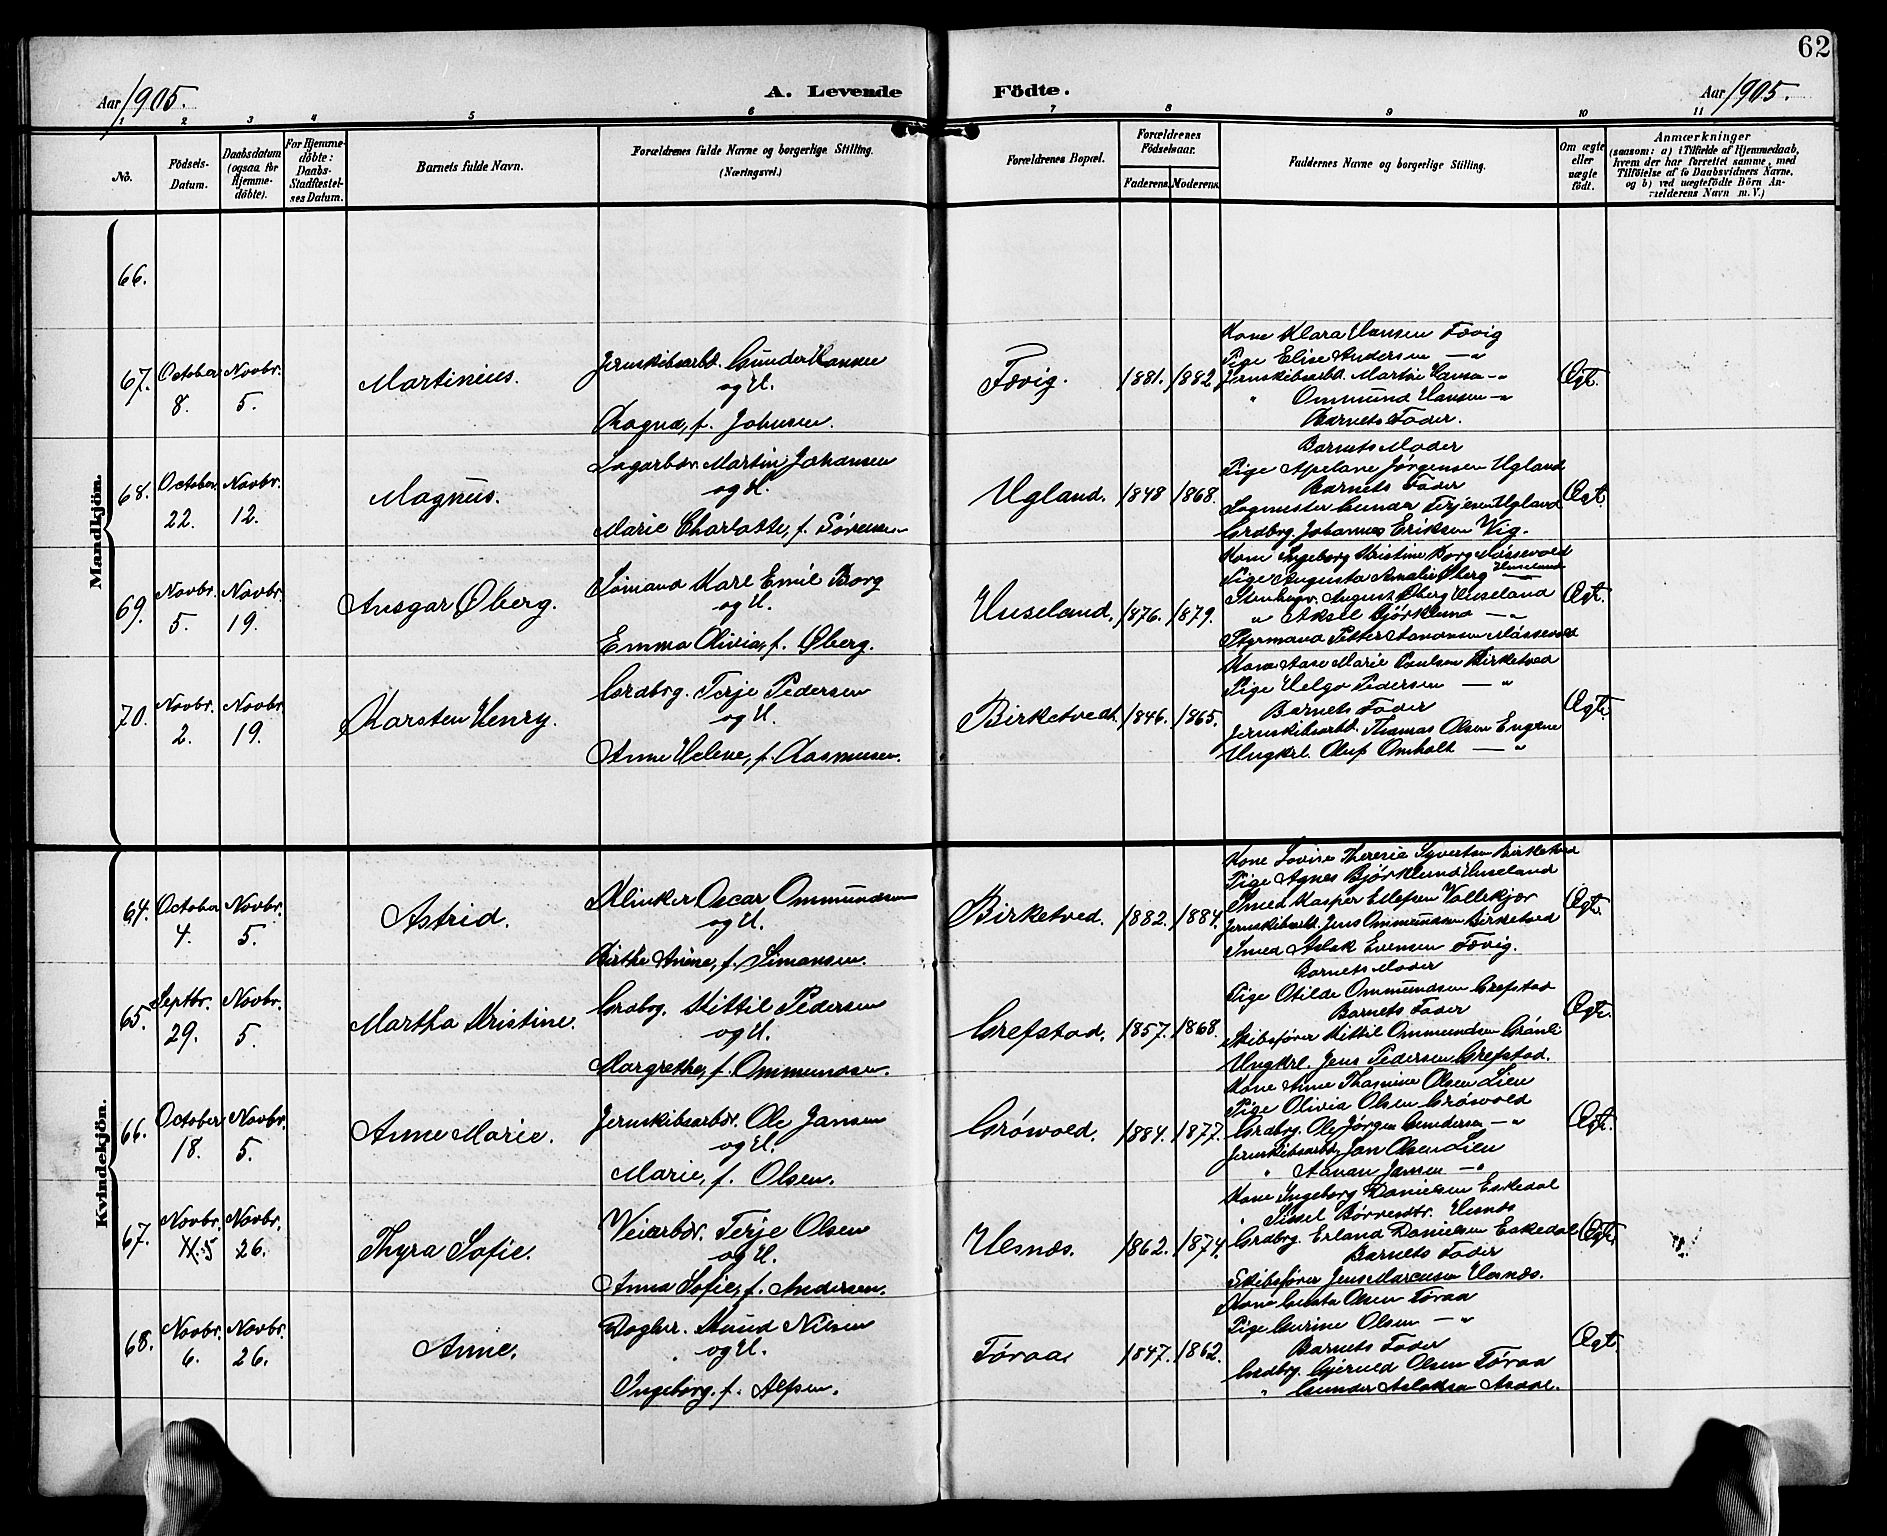 62
Aar 1905.
A. Levende Födte.
Aar 1905.
1 2 3 4 5 6 7 8 9 10 11
No.
Födsels-
Datum.
Daabsdatum
(ogsaa for
Hjemme-
döbte).
For Hjemme-
döbte:
Daabs-
Stadfæstel-
ses Datum.
Barnets fulde Navn.
Forældrenes fulde Navne og borgerlige Stilling.
(Næringsvei.)
Forældrenes Bopæl.
Forældrenes
Födselsaar.
Faderens. Moderens.
Faddernes Navne og borgerlige Stilling.
Om ægte
eller
uægte
födt.
Anmærkninger
(saasom: a) i Tilfælde af Hjemmedaab,
hvem der har forrettet samme, med
Tilföielse af to Daabsvidners Navne,
og b) ved uægtefödte Börn An-
melderens Navn m. V.)
Mandkjön.
66.
67.
October 8.
Novbr. 5.
Martinius.
Jernskibsarbd. Gunder Hansen
og H.
Ragna, f. Johnsen.
Fævig.
1881. 1882
Kone Klara Hansen Fævig
Pige Elise Andersen — "
Jernskibsarbd. Martin Hansen — "
" Ommund Hansen — "
Barnets Fader.
Ægt.
68.
October 22.
Novbr. 12.
Magnus.
Sagarbdr. Martin Johansen
og H.
Marie Charlotte, f. Sörensen
Ugland.
1848 1868.
Barnets Moder
Pige Jörgensen Ugland
Barnets Fader
Sagmester Gunder Terjesen Ugland
Grdbrg. Johannes Eriksen Vig.
Ægt.
69.
Novbr. 5.
Novbr. 19.
Ansgar Öberg.
Sömand Karl Emil Borg
og H.
Emma Olivia, f. Öberg.
Huseland.
1876. 1879.
Kone Ingeborg Kristine Borg Mössevold
Pige Augusta Amalie Öberg Huseland
Stenhugr. August Öberg Huseland
" Aksel Björklund — "
Styrmand Petter Mössevold
Ægt.
70.
Novbr. 2.
Novbr. 19.
Karsten Henry.
Grdbrg. Terje Pedersen
og H.
Anne Helene, f. Rasmussen.
Birketvedt.
1846. 1865.
Kone Aase Marie Paulsen Birketved
Pige Helga Pedersen — "
Barnets Fader
Jernskibsarbd. Thomas Olsen Engene
Ungkrl. Oluf Omholt — "
Ægt.
Kvindekjön.
64.
October 4.
Novbr. 5.
Astrid.
Klinker Oscar Ommundsen
og H.
Birthe Anine, f. Simonsen.
Birketved.
1882. 1884.
Kone Lovise Therese Syvertsen Birketved
Pige Agnes Björklund Huseland
Smed Kasper Ellefsen Vollekjær
Jernskibsarbd. Jens Ommundsen Birketved
Smed Aslak Evensen Fævig.
Ægt.
65.
Septbr. 29.
Novbr. 5.
Martha Kristine.
Grdbrg. Kittil Pedersen
og H.
Margrethe, f. Ommundsen.
Grefstad.
1857. 1868.
Barnets Moder
Pige Otilde Ommundsen Grefstad
Barnets Fader
Skibsförer Kittil Ommundsen Grönli
Ungkrl. Jens Pedersen Grefstad.
Ægt.
66.
October 18.
Novbr. 5.
Anne Marie.
Jernskibsarbdr. Ole Jansen
og H.
Marie, f. Olsen.
Grövold.
1884. 1877.
Kone Anne Thomine Olsen Lien
Pige Olivia Olsen Grösvold
Grdbrg. Ole Jörgen Gundersen — "
Jernskibsarbd. Jan Olsen Lien
" Adnan Jansen — "
Ægt.
67.
Novbr. 5
Novbr. 26.
Thyra Sofie.
Veiarbdr. Terje Olsen
og H.
Anna Sofie, f. Andersen.
Hesnæs.
1862. 1874.
Kone Ingeborg Danielsen Eskedal
" Sissel Hesnæs
Grdbrg. Erland Danielsen Eskedal
Barnets Fader
Skibsförer Jens Marcusen Hesnæs.
Ægt.
68.
Novbr. 6.
Novbr. 26.
Anne.
Daglnr. Knud Nilsen
og H.
Ingeborg, f. Alfsen.
Töraa
1847. 1862.
Kone Olsen Töraa
Pige Gurine Olsen — "
Barnets Fader
Grdbrg. Gjeruld Olsen Töraa
" Gunder Aslaksen Asdal.
Ægt.